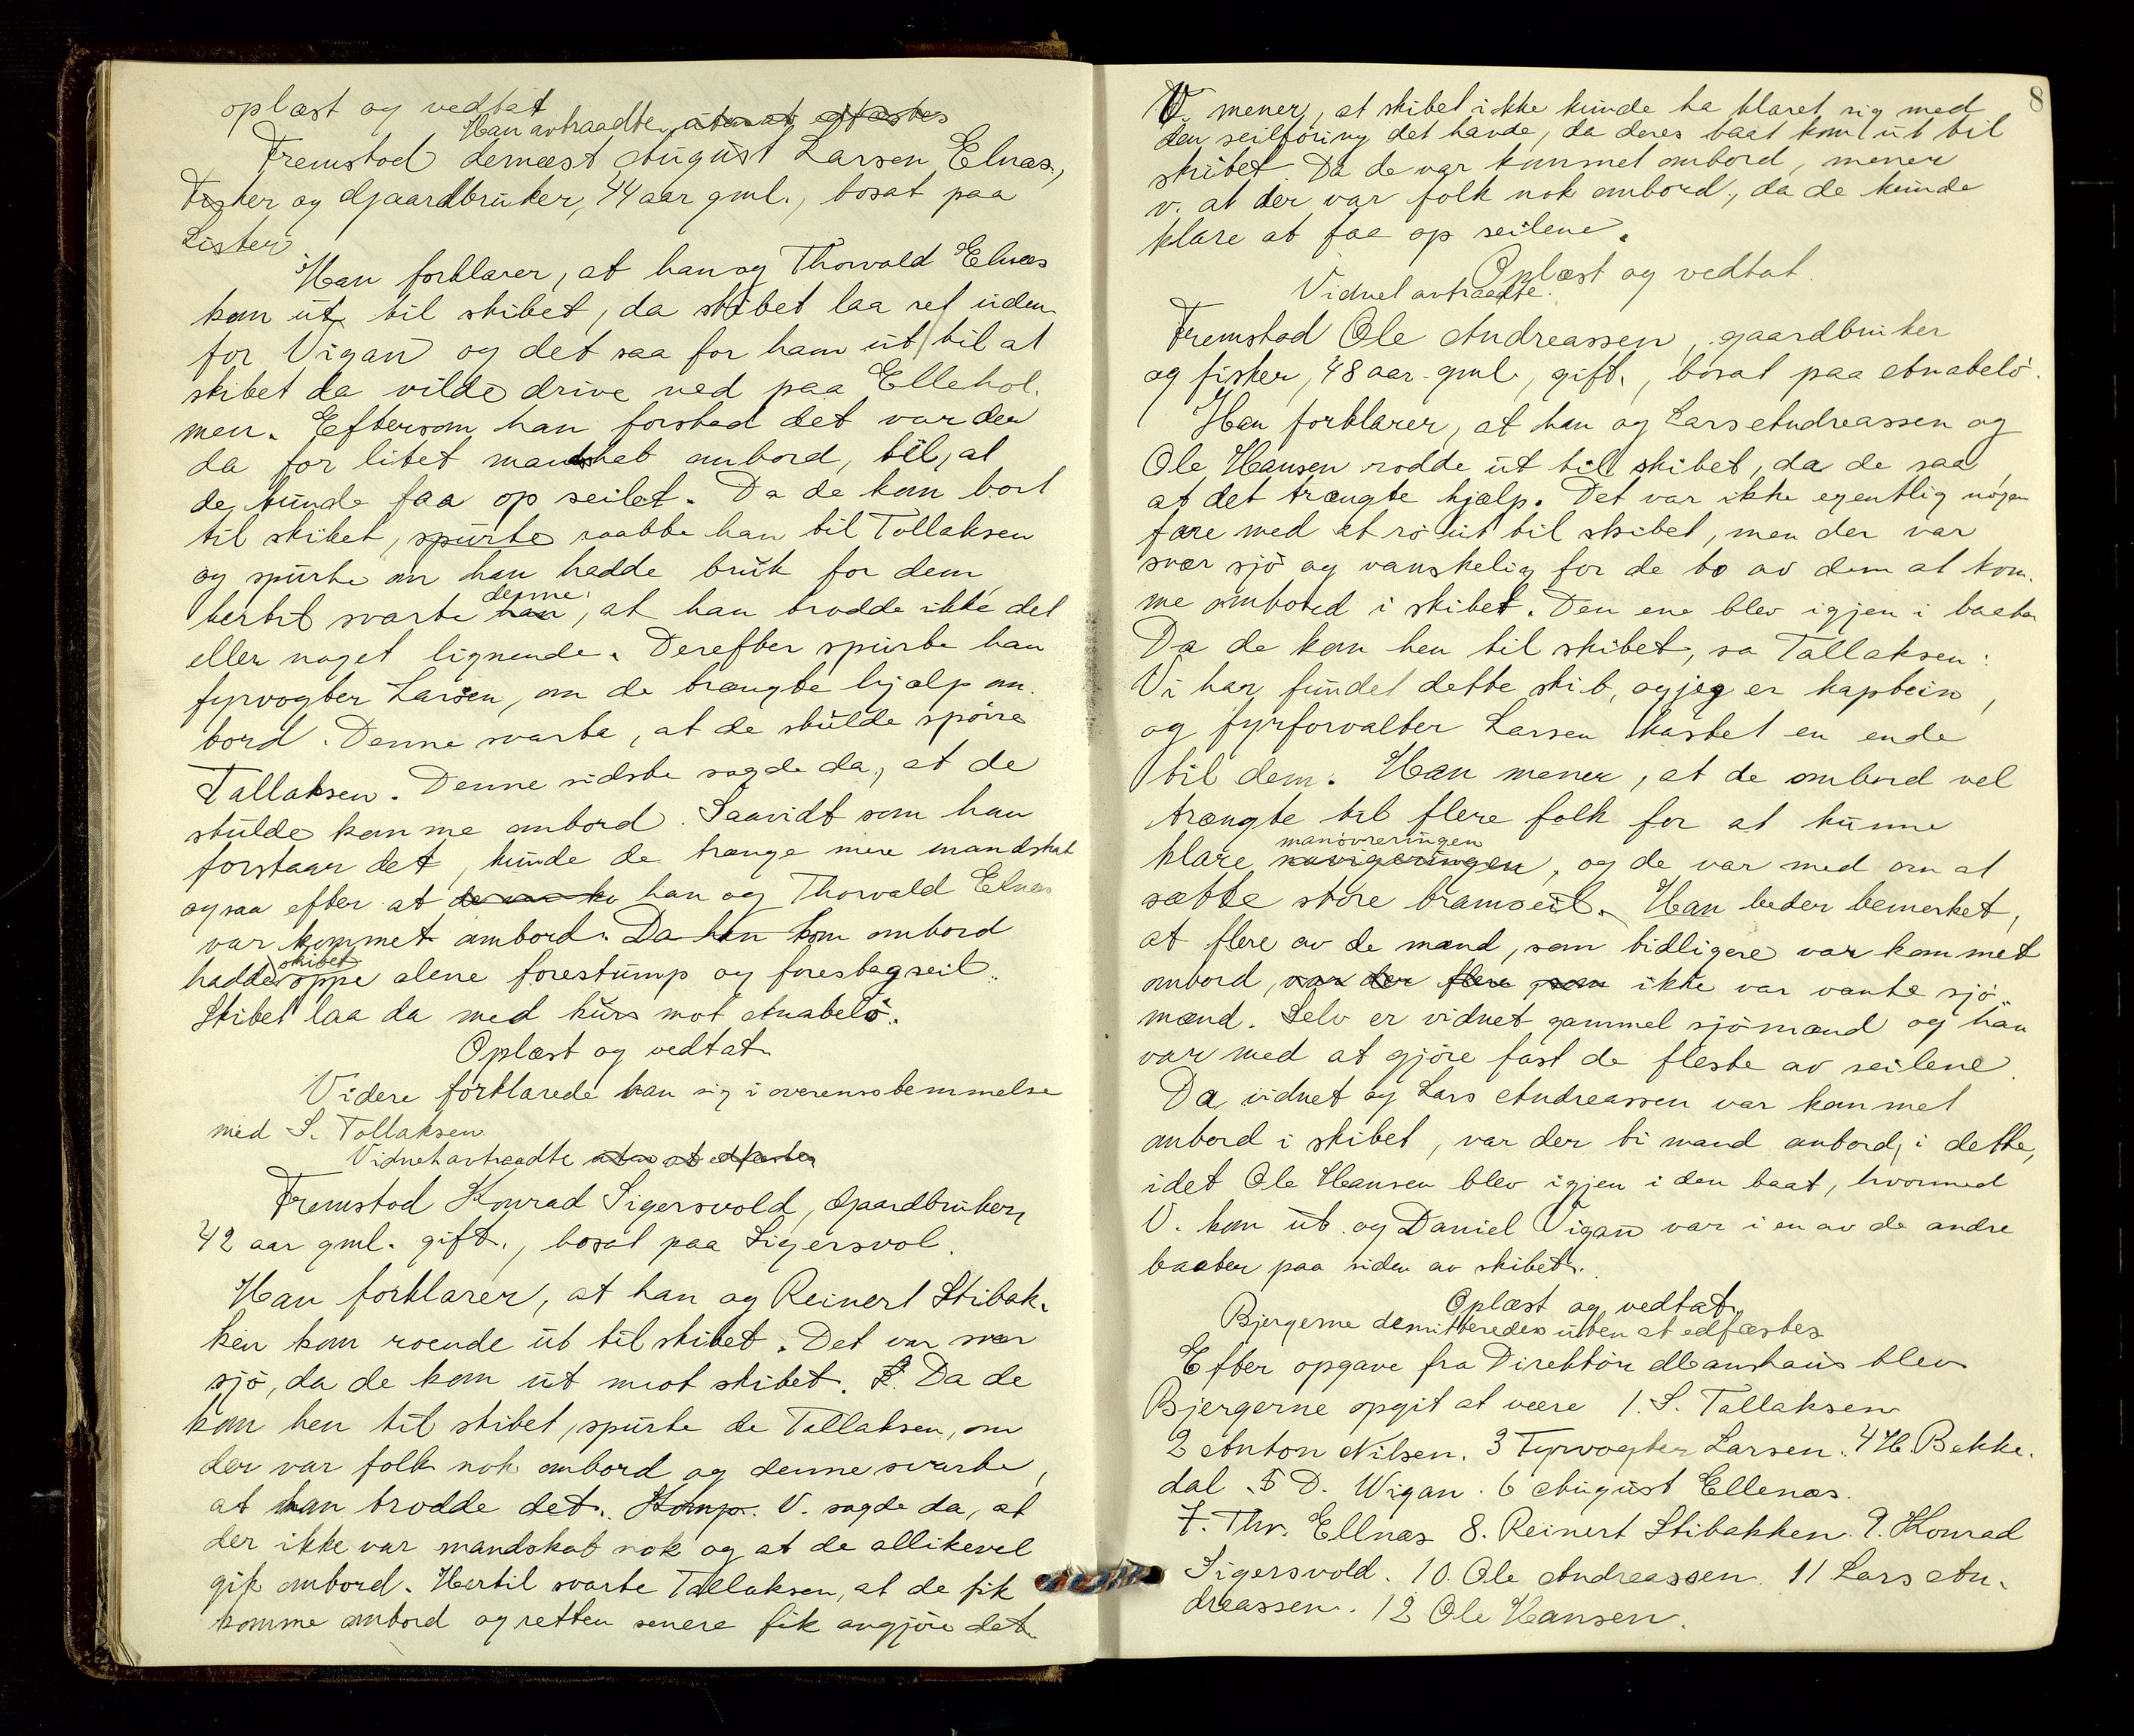 oplæst og vedtat
Han avtraadte uten at edfæstes
Fremstod dernæst August Larsen Elnæs,
Fisker og Gaardbruker, 44 aar gml., bosat paa
Lister
Han forklarer, at han og Thorvald Elnæs
kom ut til skibet, da skibet laa ret uden
for Vigan og det saa for ham ut til at
skibet da vilde drive ned paa Ellehol.
men. Eftersom han forstod det var der
da for litet mandskab ombord, til, at
de kunde faa op seilet. Da de kom bort
til skibet, spurte raabte han til Tollaksen
og spurte om han hadde bruk for dem
hertil svarte han denne, at han trodde ikke det
eller noget lignende. Derefter spurte han
fyrvogter Larsen, om de trængte hjælp om.
bord. Denne svarte, at de skulde spörre
Tallaksen. Denne sidste sagde da, at de
skulde komme ombord. Saavidt som han
forstaar det, kunde de trænge mere mandskab
ogsaa efter at han og Thorvald Elnæs
var kommet ombord. Da han kom ombord
hadde skibet oppe alene forestump og forestagseil.
Skibet laa da med kurs mot Anabelö.
Oplæst og vedtat.
Videre forklarede han sig i overensstemmelse
med S. Tollaksen
Vidnet avtraadte uten at edfæstes
Fremstod Konrad Sigersvold, Gaardbruker,
42 aar gml. gift., bosat paa Sigersvol.
Han forklarer, at han og Reinert Stibak.
ken kom roende ut til skibet. Det var svær
sjö, da de kom ut mot skibet. Da de
kom hen til skibet, spurte de Tallaksen, om
der var folk nok ombord og denne svarte,
at han trodde det. Komp. V. sagde da, at
der ikke var mandskab nok og at de allikevel
gik ombord. Hertil svarte Tallaksen, at de fik
komme ombord og retten senere fik avgjöre det.
8
V. mener, at skibet ikke kunde ha klaret sig med
den seilföring det havde, da deres baat kom ut til
skibet. Da de var kommet ombord, mener
v. at der var folk nok ombord, da de kunde
klare at faa op seilene.
Oplæst og vedtat.
Vidnet avtraadte.
Fremstod Ole Andreassen, gaardbruker
og fisker, 48 aar gml, gift., bosat paa Anabelö.
Han forklarer, at han og Lars Andreassen og
Ole Hansen rodde ut til skibet, da de saa
at det trængte hjælp. Det var ikke egentlig nogen
fare med at ro ut til skibet, men der var
svær sjö og vanskelig for de to av dem at kom.
me ombord i skibet. Den ene blev igjen i baaten
Da de kom hen til skibet, sa Tallaksen:
Vi har fundet dette skib, og jeg er kaptein,
og fyrforvalter Larsen kastet en ende
til dem. Han mener, at de ombord vel
trængte til flere folk for at kunne
klare navigeringen manövreringen, og de var med om at
sætte store bramseil. Han beder bemerket,
at flere av de mænd, som tidligere var kommet
ombord, var der flere som ikke var vante sjö-
mænd. Selv er vidnet gammel sjömand og han
var med at gjöre fast de fleste av seilene.
Da vidnet og Lars Andreassen var kommet
ombord i skibet, var der ti mand ombord, i dette,
idet Ole Hansen blev igjen i den baat, hvormed
V. kom ut og Daniel Vigan var i en av de andre
baater paa siden av skibet.
Oplæst og vedtat.
Bjergerne demitteredes uten at edfæstes
Efter opgave fra Direktör Manshaus blev
Bjergerne opgit at være 1. S. Tallaksen
2 Anton Nilsen. 3 Fyrvogter Larsen. 4 H. Bekke.
dal. 5 D. Wigan. 6 August Ellenæs.
7. Thv. Ellnæs 8. Reinert Stibakken. 9. Konrad
Sigersvold. 10. Ole Andreassen. 11 Lars An.
dreassen. 12 Ole Hansen.